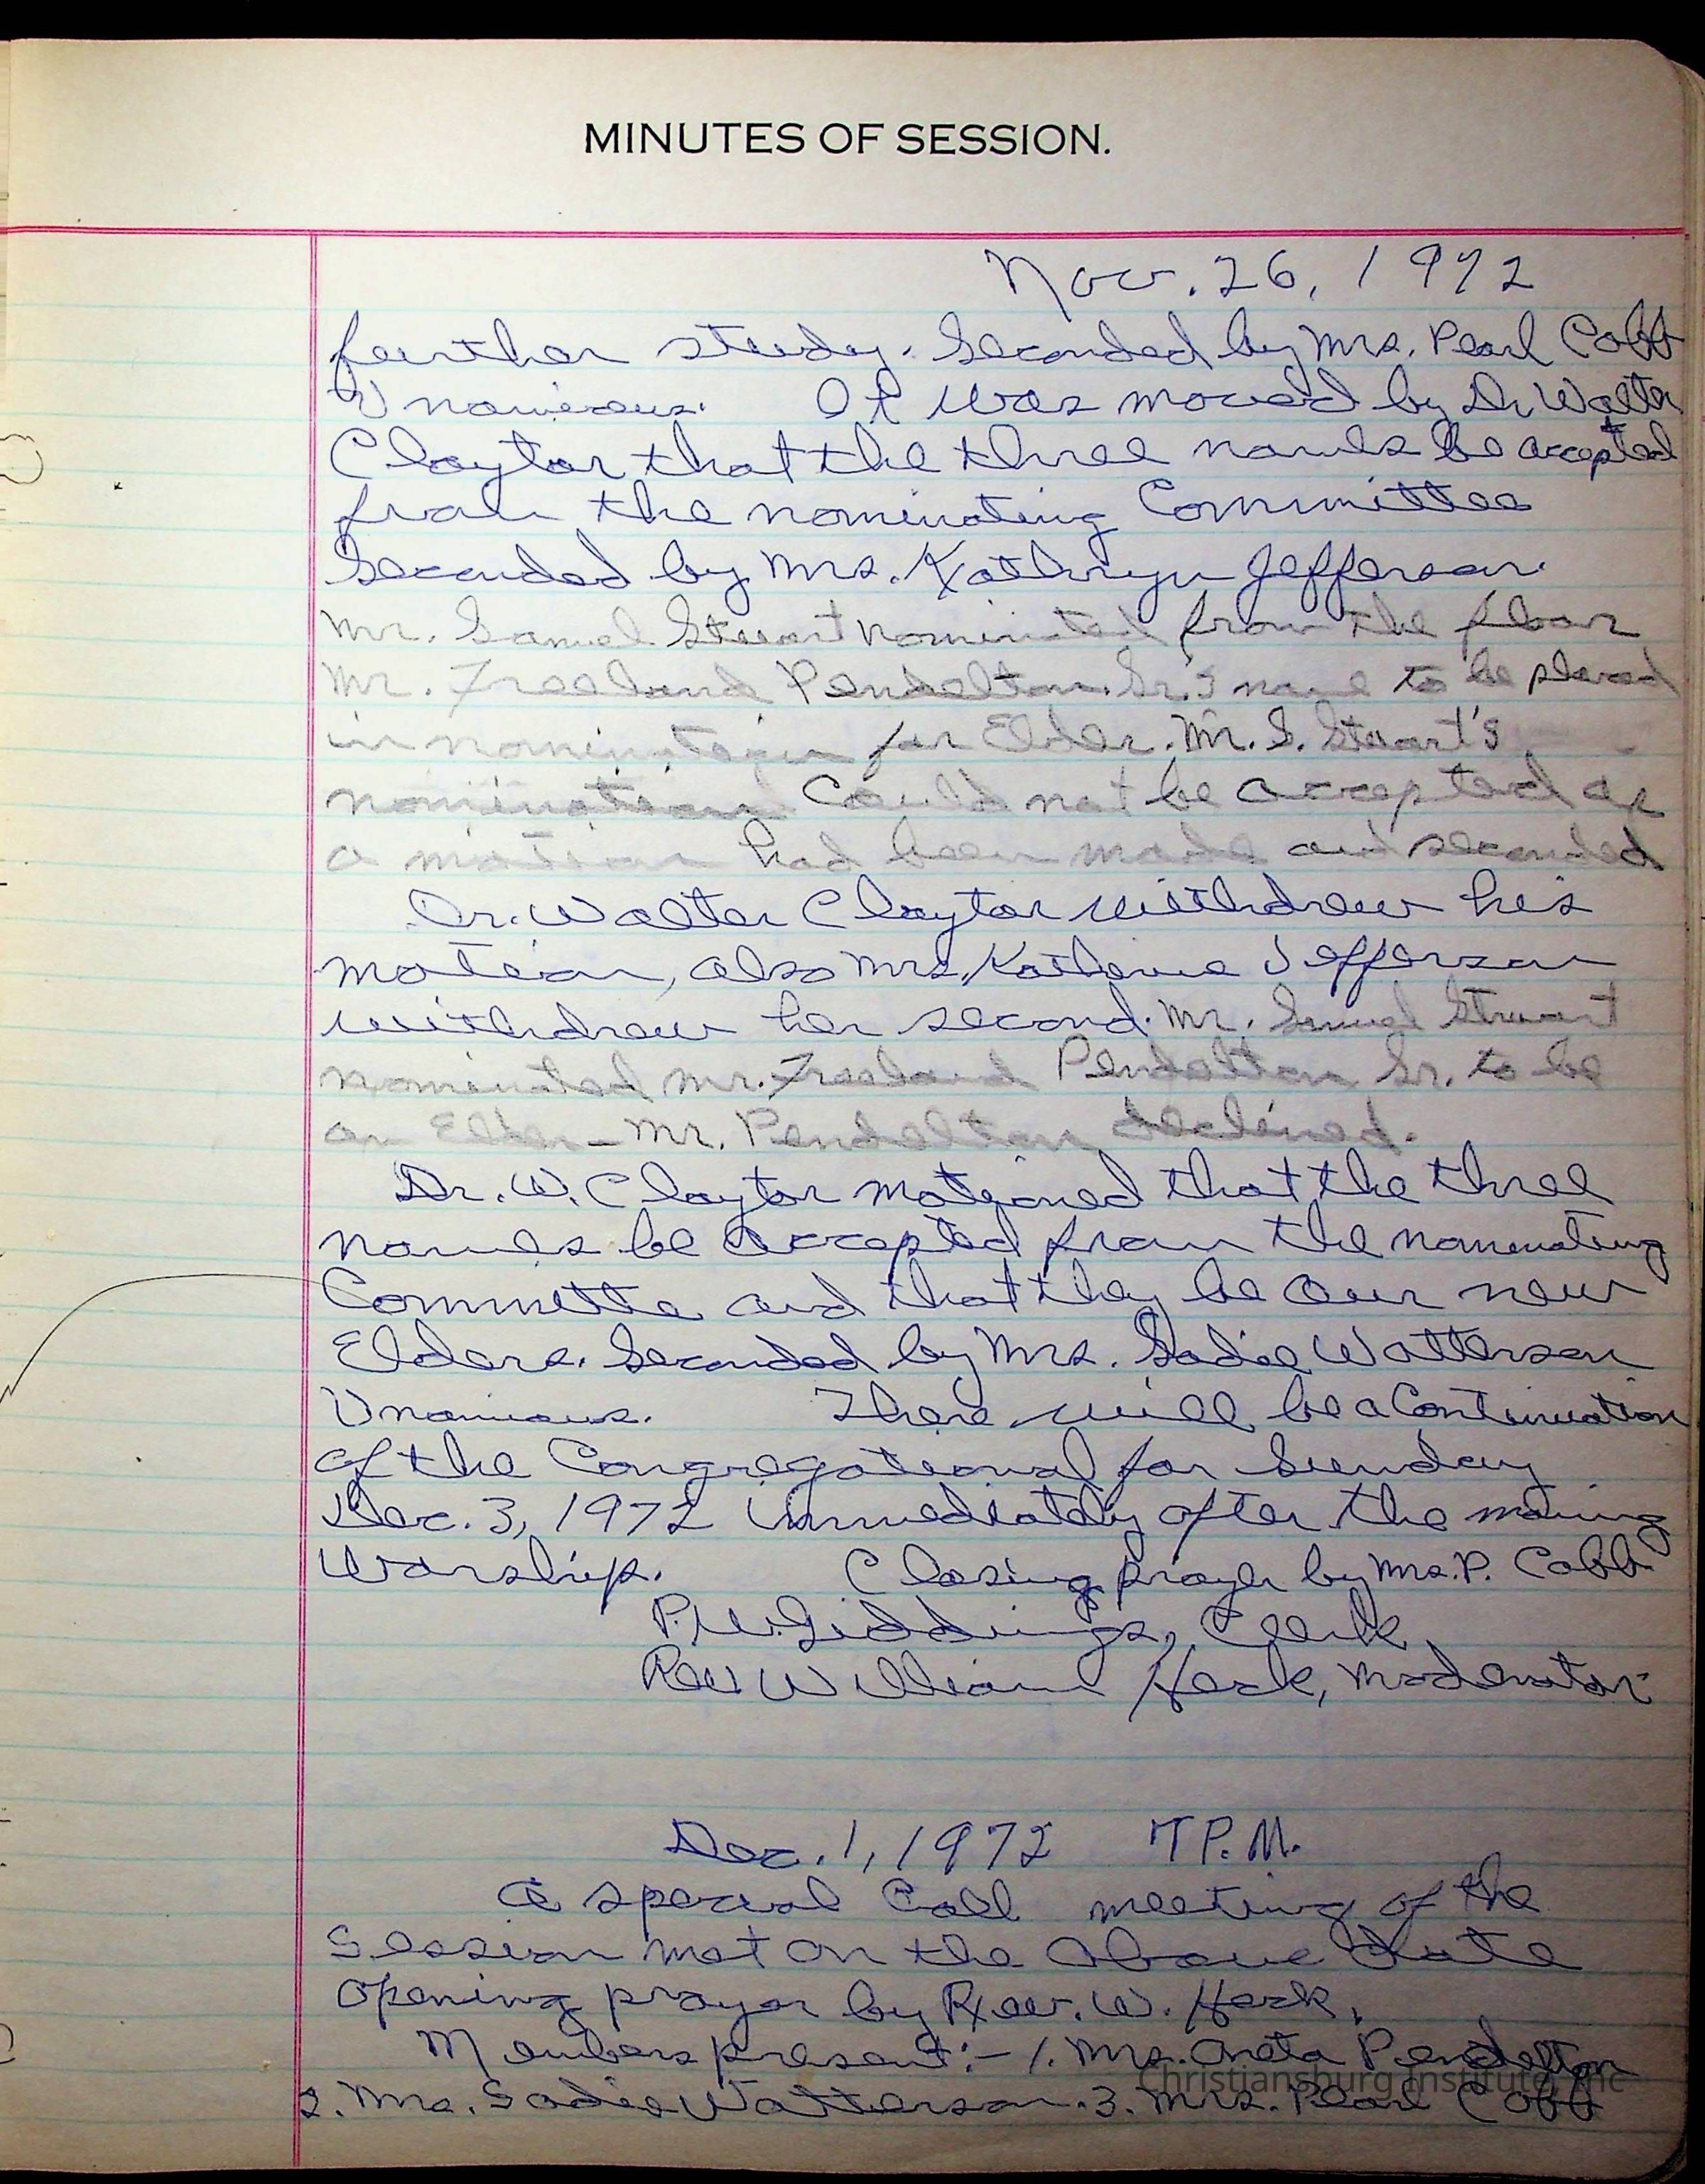 MINUTES OF SESSION.
Nov. 26, 1972
further study. Seconded by Mrs. Pearl Cobb
Unanimous. It was moved by Dr. Walter
Claytor that the three names be accepted
from the nominating Committee
Seconded by Mrs. Kathryn Jefferson.
Mr. Samuel Stuart nominated from the floor
Mr. Freeland Pendelton. Sr.'s name to be placed
in nomination for Elder. Mr. S. Stuart's
nomination Could not be accepted as
a motion had been made and seconded
Dr. Walter Claytor withdrew his
motion, also Mrs. Katherine Jefferson
withdrew her second. Mr. Samuel Stuart
nominated Mr. Freeland Pendelton Sr. to be
an Elder - Mr. Pendelton declined.
Dr. W. Claytor motioned that the three
names be accepted from the nominating
Committe and that they be our new
Elders. Seconded by Mrs. Sadie Watterson
Unanimous. There will be a Continuation
of the Congregational for Sunday
Dec. 3, 1972 immediately after the morning
Worship. Closing prayer by Mrs. P. Cobb
P.W. Giddings, Clerk
Rev William Heck, Moderator
Dec. 1, 1972 7 P.M.
A special Call meeting of the
Session met on the above date
Opening prayer by Rev. W. Heck.
Members present:- 1. Mrs. Oneta Pendelton
2. Mrs. Sadie Watterson. 3. Mrs. Pearl Cobb
Christiansburg Institute, Inc